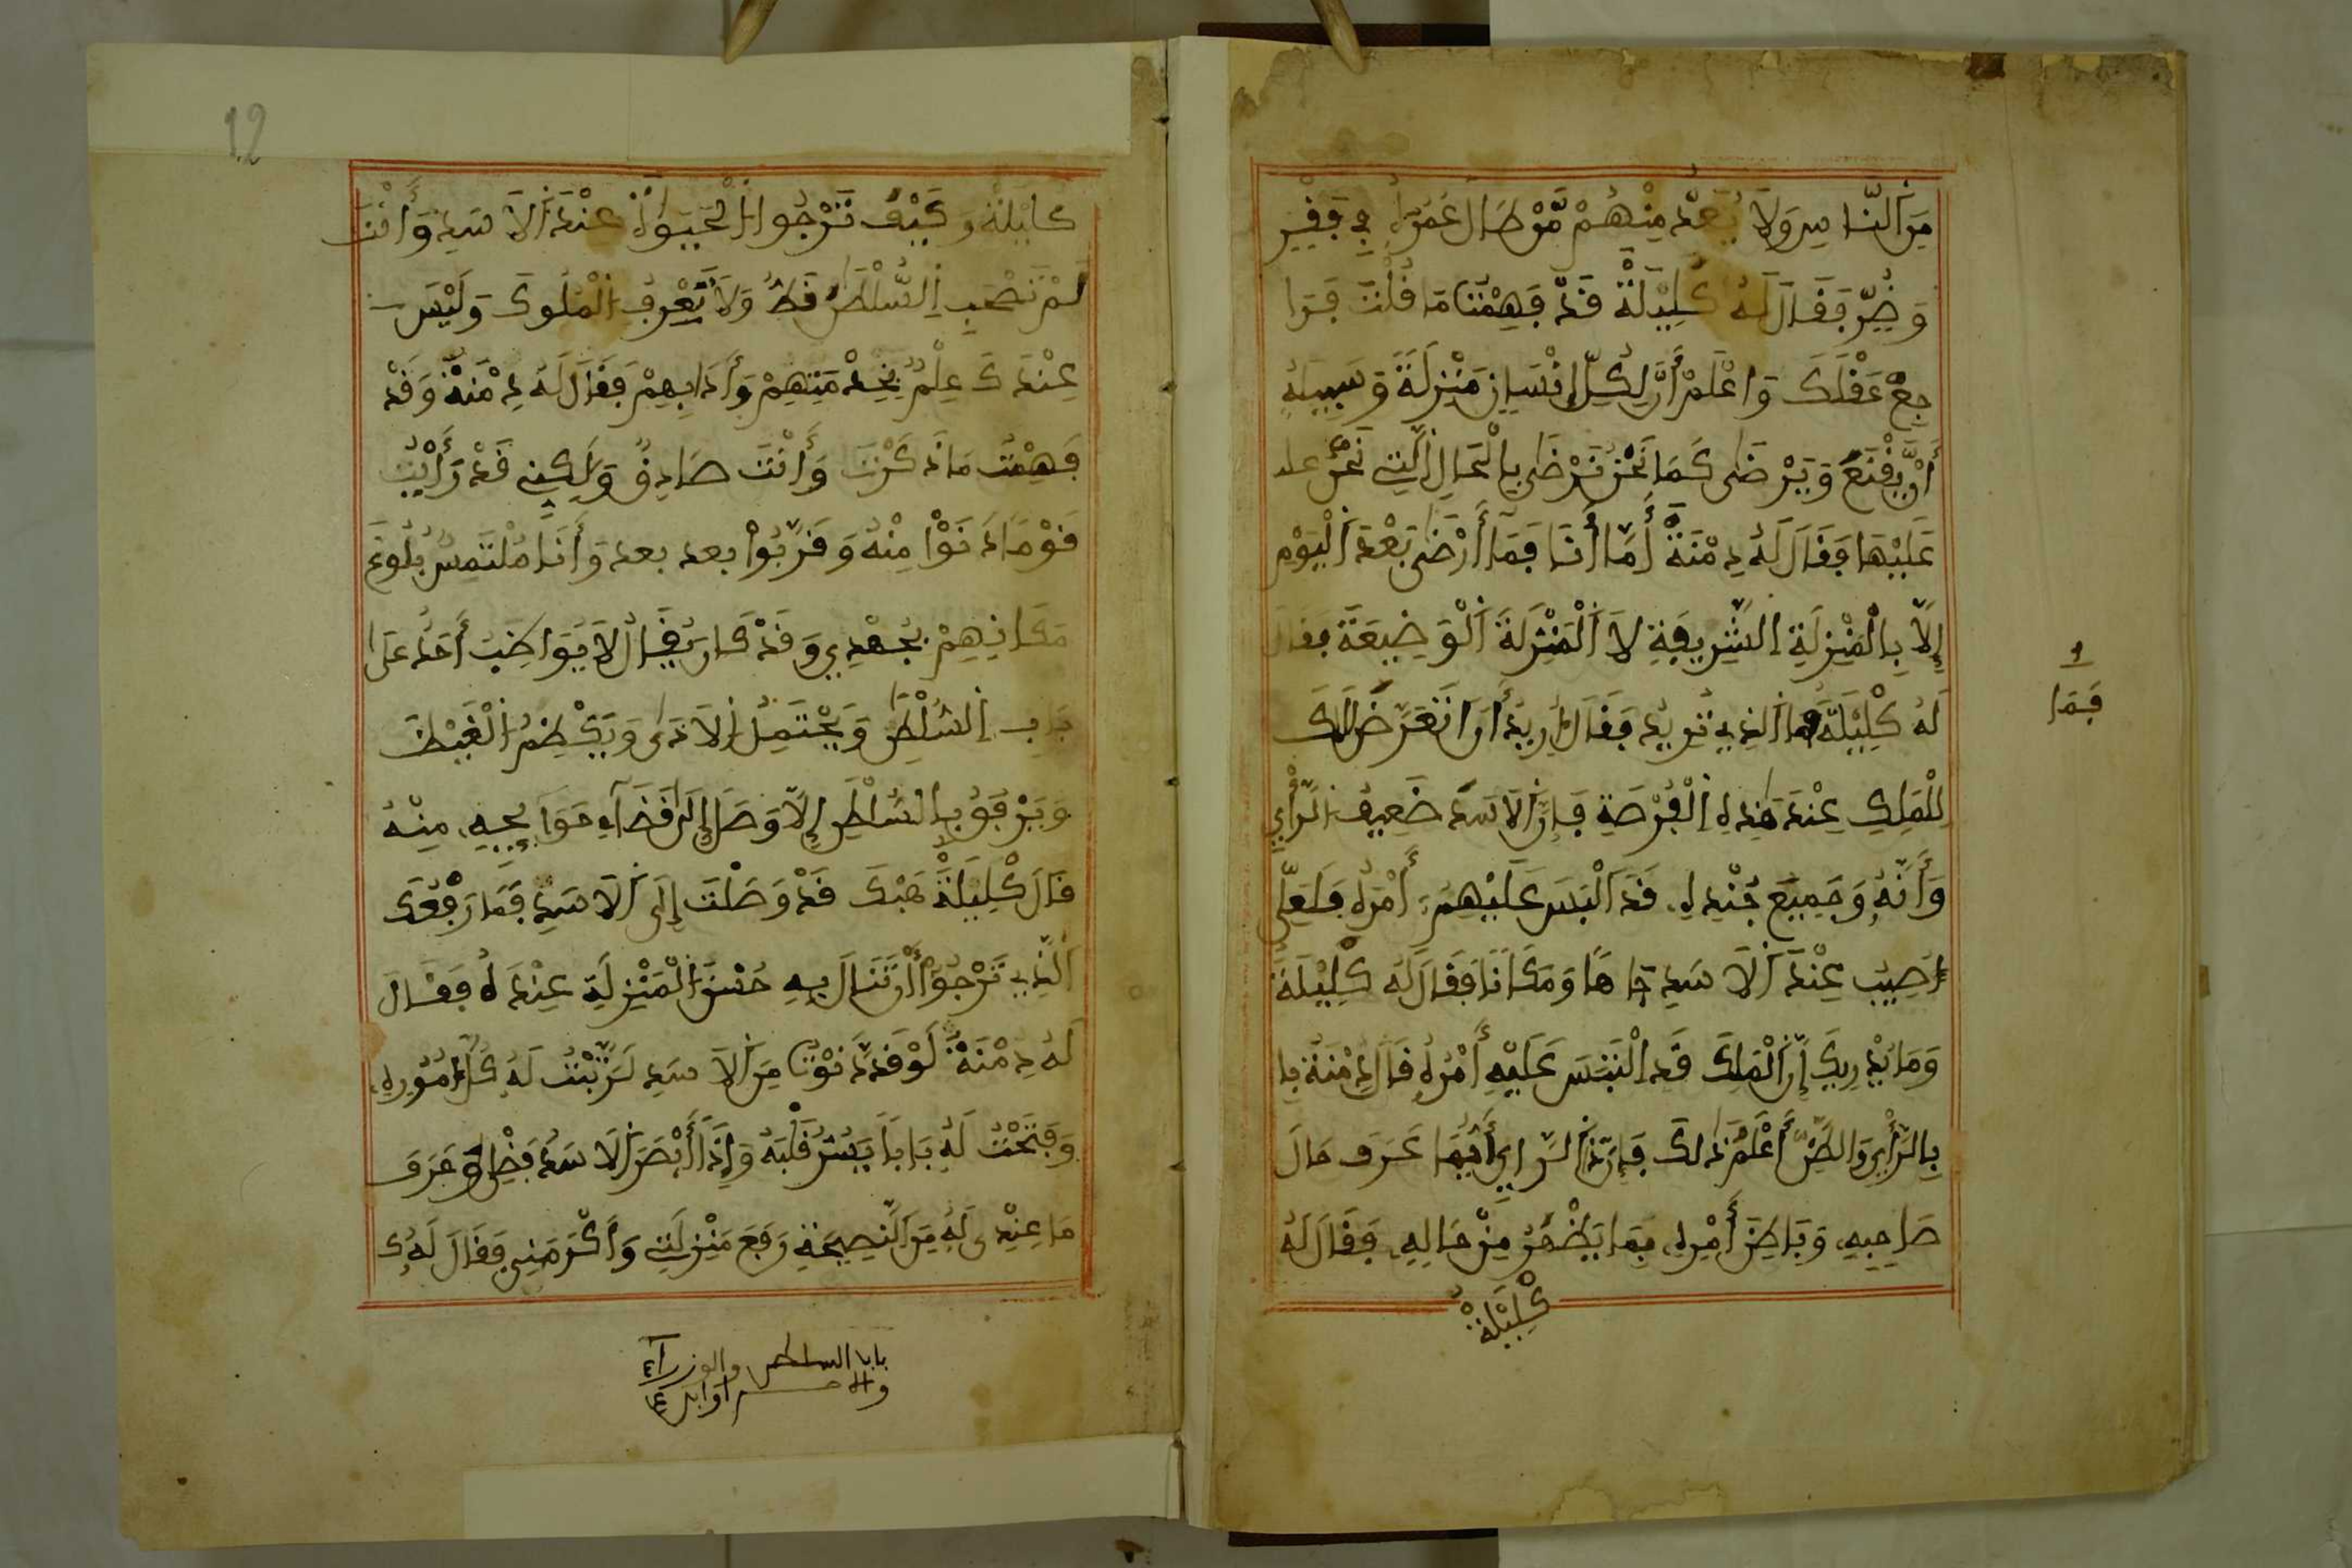 مِنَ ٱلنَّاسِ وَلَا يُعَدُّ مِنْهُمْ مَّنْ طَالَ عُمَرُهُ فِي فَقْرٍ
وَضُرٍّ فَقَالَ لَهُ كَلِيلَةُ قَدْ فَهِمْتُ مَا قُلْتَ فَرَا
جِعْ عَقْلَكَ وَاعْلَمْ أَنَّ لِكُلِّ إِنْسَانٍ مَنْزِلَةً وَسَبِيلُهُ
أَنْ يَّقْنَعَ وَيَرْضَى كَمَا نَحْنُ نَرْضَى بِالْحَالِ ٱلَّتِي نَحْنُ
عَلَيْهَا فَقَالَ لَهُ دِمْنَةُ أَمَّا أَنَا فَمَا أَرْضَى بَعْدَ ٱلْيَوْمِ
إِلَّا بِالْمَنْزِلَةِ الشَّرِيفَةِ لَا ٱلْمَنْزِلَةَ ٱلْوَضِيعَةَ فقال
لَهُ كَلِيلَةُ مَا ٱلذِي تُرِيدُ فَقَالَ أُرِيدُ أَنْ أَتَعَرَّضَ
لِلْمَلِكِ عِنْدَ هَٰذِهِ ٱلْفُرْصَةِ فَإِنَّ ٱلْأَسَدَ ضَعِيفُ ٱلرَّأْيِ
وَأَنَّهُ وَجَمِيعَ جُنْدِهِ قَدِ الْبَسَ عَلَيْهِمْ أَمْرُهُ فَلَعَلِّي
أُصِيبُ عِنْدَ ٱلْأَسَدِ جَاهًا وَمَكَانًا فَقَالَ لَهُ كَلِيلَةُ
وَمَا يُدْرِيكَ إِنَّ ٱلْمَلِكَ قَدِ الْتَبَسَ عَلَيْهِ أَمْرُهُ قَالَ دِمْنَةُ بِا
بِالرَّأْيِ وَالظَّنِّ أَعْلَمُ ذَٰلِكَ فَإِنَّ ذَا ٱلرَّأْيِ عَرَفَ حَالَ
صَاحِبِهِ وَبَاطِنَ أَمْرِهِ بِمَا يَظْهَرُ مِنْ حَالِهِ فَقَالَ لَهُ
كَلِيلَةُ
فَمَا
كَلِيلَةُ وَكَيْفَ تَرْجُوا ٱلْحَيَوٰةَ عِنْدَ ٱلْأَسَدِ وَأَنْتَ
لَمْ تَصْحَبِ ٱلسُّلْطَٰنَ قَطُّ وَلَا تَعْرِفُ ٱلْمُلُوكَ وَلَيْسَ
عِنْدَكَ عِلْمٌ بِخِدْمَتِهِمْ وَأَدَابِهِمْ فَقَالَ لَهُ دِمْنَةُ وَقَدْ
فَهِمْتُ مَا ذَكَرْتَ وَأَنْتَ صَادِقٌ وَلَٰكِنِّي قَدْ رَأَيْتُ
قَوْمًا دَنَوْا مِنْهُ وَقَرُبُوا بعد بعد وَأَنَا مُلْتَمِسٌ بُلُوغَ
مَكَانِهِمْ بِجُهْدِي وَقَدْ كَانَ يُقَالُ لَا يُوَاظِبُ أَحَدٌ عَلَى
بَابِ ٱلسُّلْطَٰنِ وَيَحْتَمِلُ ٱلْأَذَىٰ وَيَكْظِمُ ٱلْغَيْظَ
وَيَرْفُقُ بِالسُّلْطَٰنِ إِلَّا وَصَلَ إِلَى قَضَاءِ حَوَايِجِهِ مِنْهُ
قَالَ كَلِيلَةُ هَبْكَ قَدْ وَصَلْتَ إِلَى ٱلْأَسَدِ فَمَا رِفْقُكَ
ٱلَّذِي تَرْجُوا أَنْ تَنَالَ بِهِ حُسْنَ ٱلْمَنْزِلَةِ عِنْدَهُ فَقَالَ
لَهُ دِمْنَةُ لَوْ قَدْ دَّنَوْتُ مِنَ ٱلْأَسَدِ لَرَتَّبْتُ لَهُ كُلَّ أُمُورِهِ
وَفَتَحْتُ لَهُ بَابًا يَسُرُّ قَلْبَهُ وَإِذَا أَبْصَرَ ٱلْأَسَدُ فَضْلِي وَعَرَفَ
مَا عِنْدِي لَهُ مِنَ ٱلنَّصِيحَةِ رَفَعَ مَنْزِلَتِي وَأَكْرَمَنِي فَقَالَ لَهُ ك
والوزرآء
12